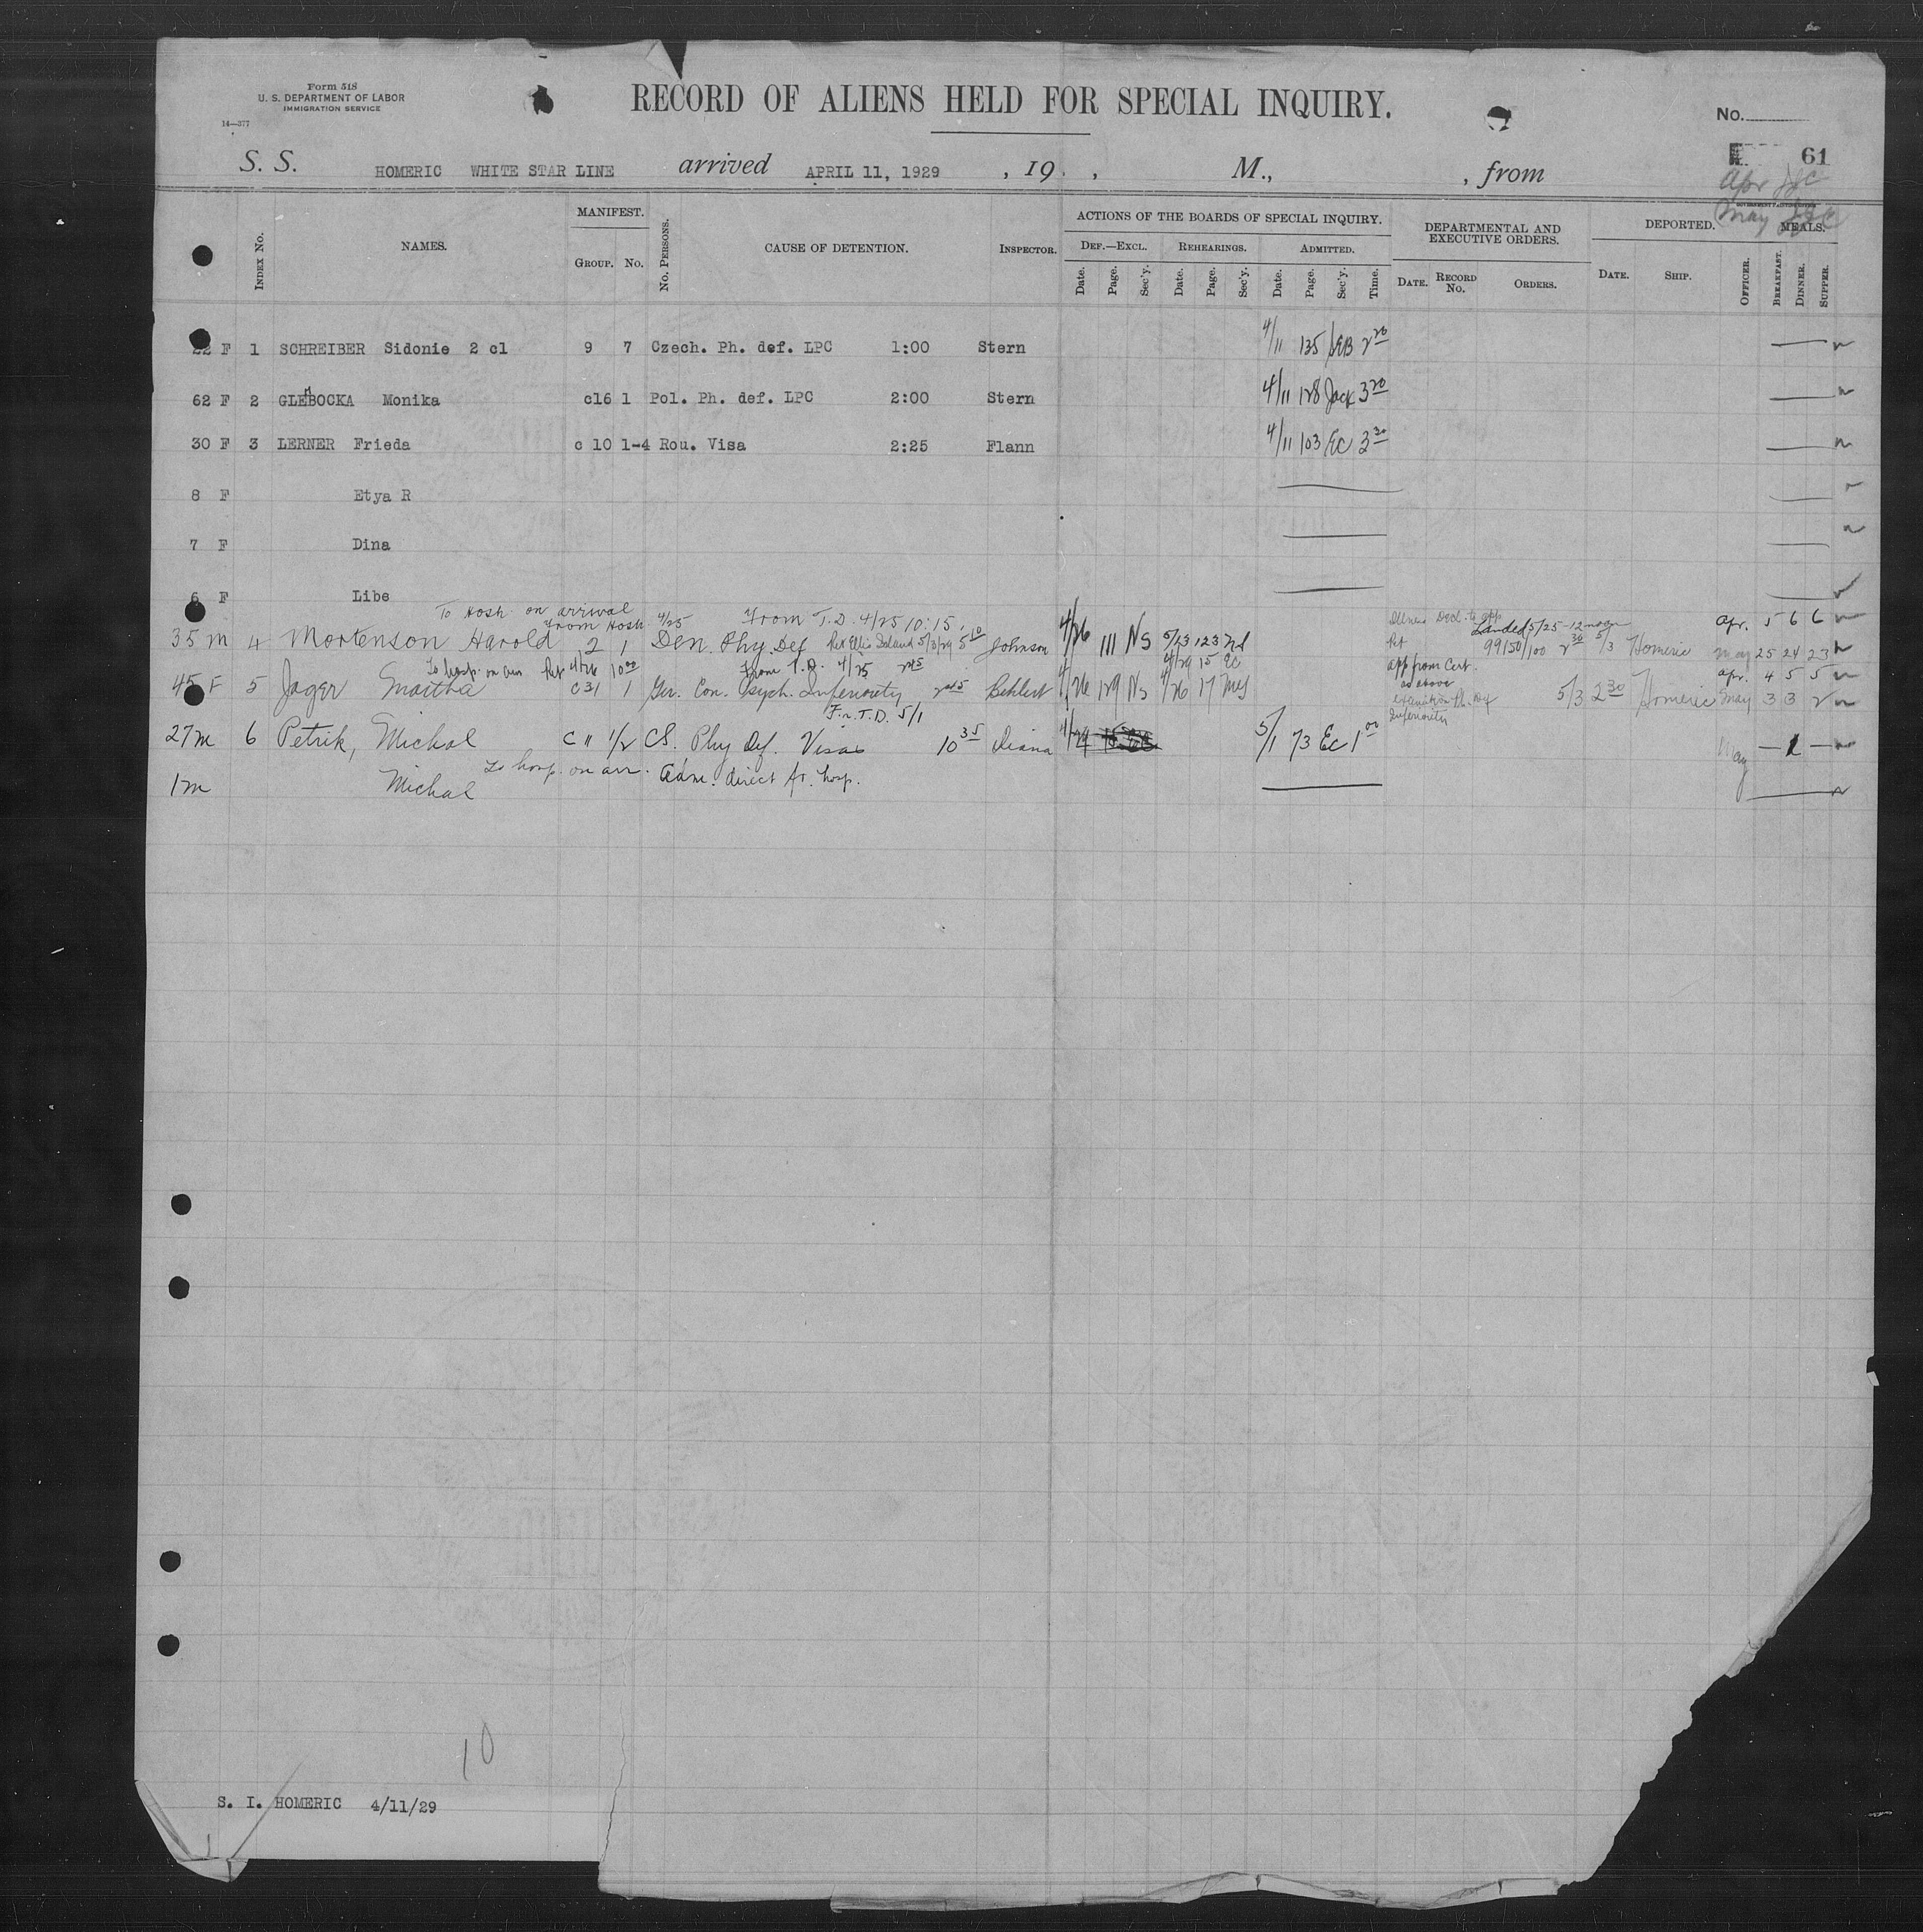 Form 518
U. S. DEPARTMENT OF LABOR
IMMIGRATION SERVICE
14—377
RECORD OF ALIENS HELD FOR SPECIAL INQUIRY.
No.
61
S. S. HOMERIC WHITE STAR LINE arrived APRIL 11, 1929 , 19 , M., , from
Apr
May
INDEX No. NAMES. MANIFEST. GROUP. No. No. PERSONS. CAUSE OF DETENTION. INSPECTOR.
ACTIONS OF THE BOARDS OF SPECIAL INQUIRY.
DEF.—EXCL. REHEARINGS. ADMITTED.
Date. Page. Sec'y. Date. Page. Sec'y. Date. Page. Sec'y. Time.
DEPARTMENTAL AND EXECUTIVE ORDERS.
DATE. RECORD No. ORDERS.
DEPORTED.
DATE. SHIP. OFFICER.
MEALS.
BREAKFAST. DINNER. SUPPER.
22 F 1 SCHREIBER Sidonie 2 cl 9 7 Czech. Ph. def. LPC 1:00 Stern 4/11 135 SEB 2 20
62 F 2 GLEBOCKA Monika c16 1 Pol. Ph. def. LPC 2:00 Stern 4/11 128 Jack 3 20
30 F 3 LERNER Frieda c 10 1-4 Rou. Visa 2:25 Flann 4/11 103 EC 3 30
8 F Etya R
7 F Dina
6 F Libe
To Hosh. on arrival From Hosh. 4/25 From T.D. 4/25 10:15
35 m 4 Mortenson Harold 2 1 Den. Phy. Def Ret Ellis Island 5/3/29 5 10 Johnson 4/26 111 NS 5/13 123 4/29 15 EC Landed 5/25-12 noon 99150/100 2 30 5/3 Homeric Apr. 5 6 6 May 25 24 23
To hosp. on arr Ret 4/26 10 00 From T.D. 4/25 app from Cert. as above
45 F 5 Jager Martha c 31 1 Ger. Con. Psych. Inferiority 2 45 4/26 129 Ns 4/26 17 5/3 2 30 Homeric Apr. 4 5 5 May 3 3 2
Fr. T.D. 5/1
27 m 6 Petrik, Michal c 11 1/2 CS. Phy Def. Visas 10 35 Diana 4/29 5/1 73 EC 1 00 May — 1 —
To hosp. on arr. Adm. direct fr. hosp.
1 m Michal
10
S. I. HOMERIC 4/11/29